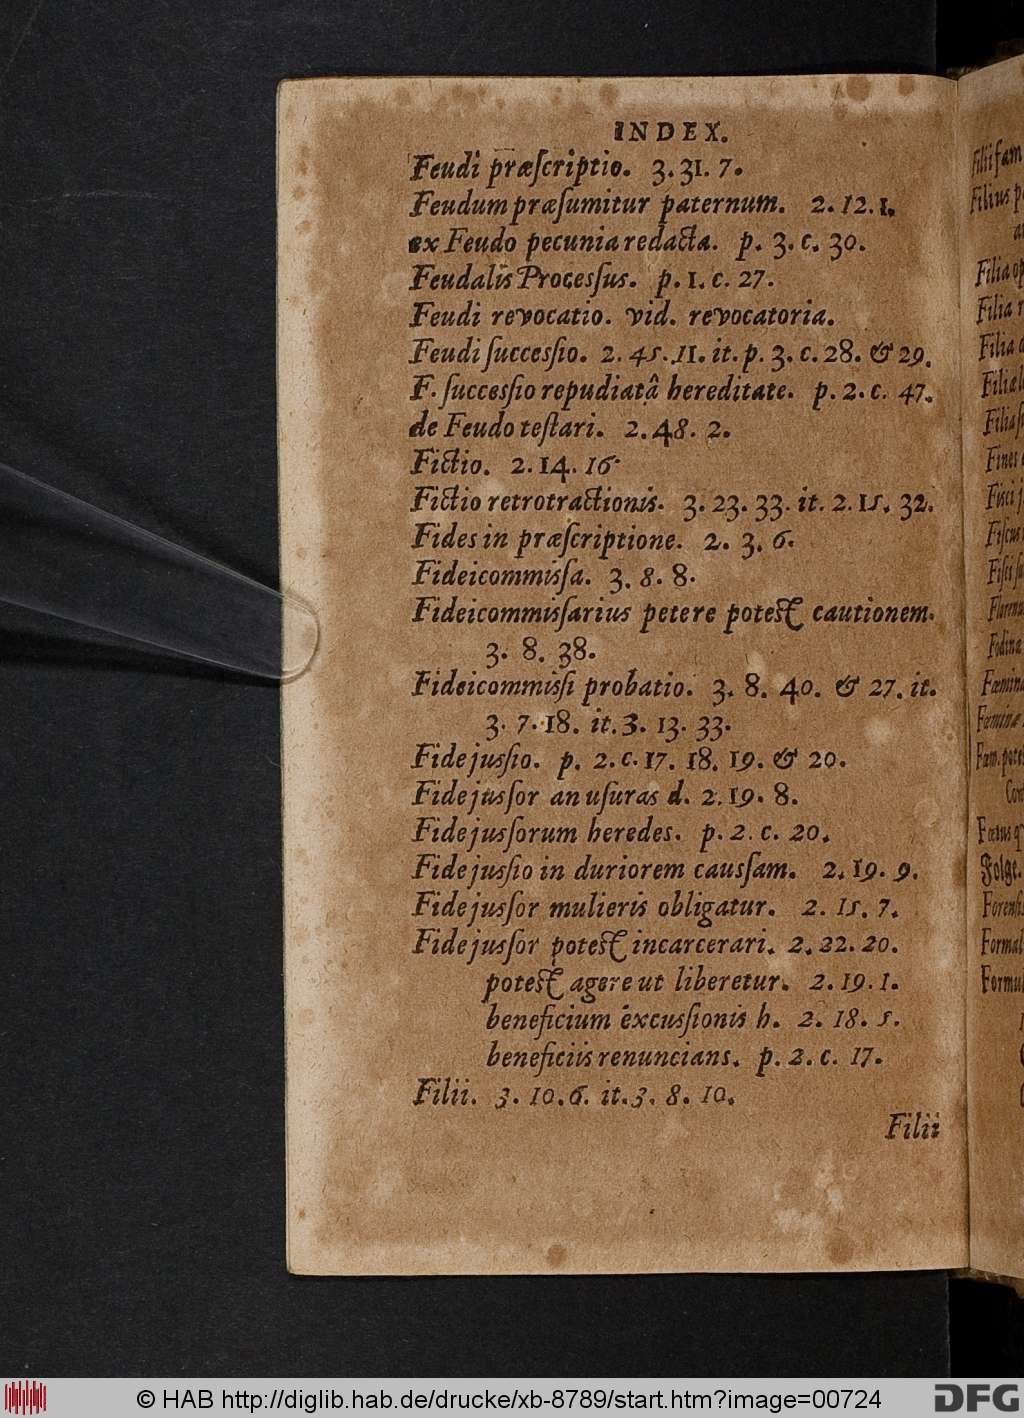 INDEX.
Feudi præſcriptio. 3. 31. 7.
Feudum præſumitur paternum. 2. 12. 1.
ex Feudo pecunia redacta. p. 3. c. 30.
Feudalis Proceſſus. p. 1. c. 27.
Feudi revocatio. vid. revocatoria.
Feudi ſucceſſio. 2. 45. 11. it. p. 3. c. 28. & 29.
F. ſucceſſio repudiatâ hereditate. p. 2. c. 47.
de Feudo teſtari. 2. 48. 2.
Fictio. 2. 14. 16.
Fictio retrotractionis. 3. 23. 33. it. 2. 15. 32.
Fides in præſcriptione. 2. 3. 6.
Fideicommiſſa. 3. 8. 8.
Fideicommiſſarius petere poteſt cautionem.
3. 8. 38.
Fideicommiſſi probatio. 3. 8. 40. & 27. it.
3. 7. 18. it. 3. 13. 33.
Fidejuſſio. p. 2. c. 17. 18. 19. & 20.
Fidejuſſor an uſuras d. 2. 19. 8.
Fidejuſſorum heredes. p. 2. c. 20.
Fidejuſſio in duriorem cauſſam. 2. 19. 9.
Fidejuſſor mulieris obligatur. 2. 15. 7.
Fidejuſſor poteſt incarcerari. 2. 22. 20.
poteſt agere ut liberetur. 2. 19. 1.
beneficium excuſſionis h. 2. 18. 5.
beneficiis renuncians. p. 2. c. 17.
Filii. 3. 10. 6. it. 3. 8. 10.
Filii
Filius
Filia
Filia
Filia
Folge.
© HAB http://diglib.hab.de/drucke/xb-8789/start.htm?image=00724
DFG